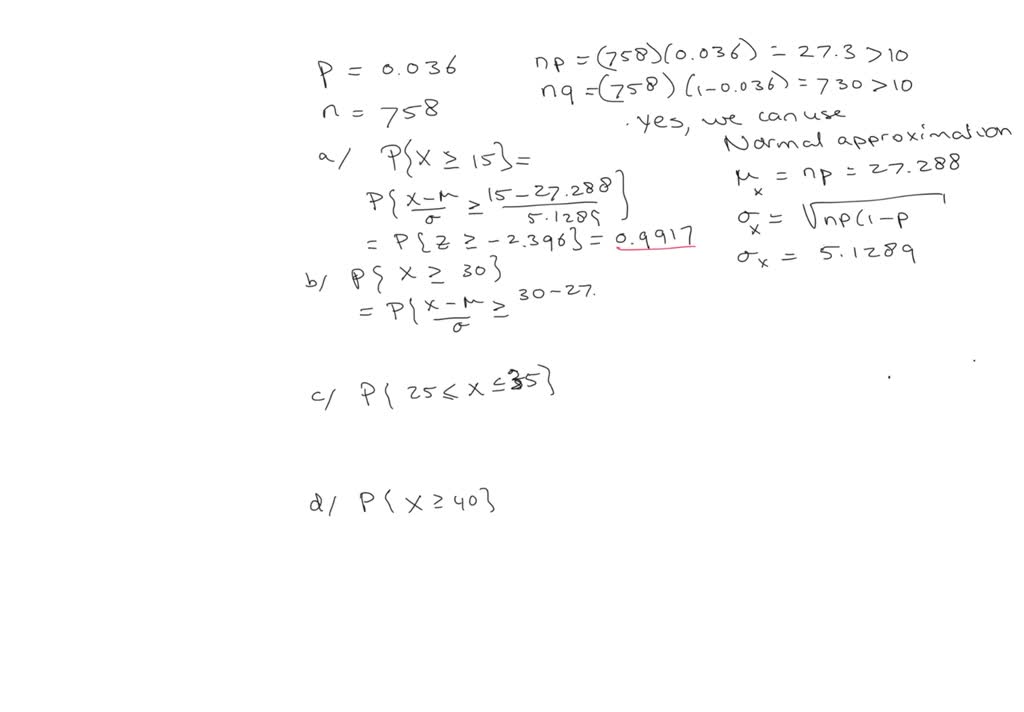 p = 0.036
n = 758
np = (758)(0.036) = 27.3 > 10
nq = (758) (1-0.036) = 730 > 10
. Yes, we can use
Normal approximation
μx = np = 27.288
σx = √np(1-p
σx = 5.1289
a/ P{X ≥ 15} =
P{ X-μ/σ ≥ 15-27.288/5.1289 }
= P{Z ≥ -2.396} = 0.9917
b/ P{ X ≥ 30}
= P{ X-μ/σ ≥ 30-27.
c/ P{ 25 ≤ X ≤ 35}
d/ P{ X ≥ 40}